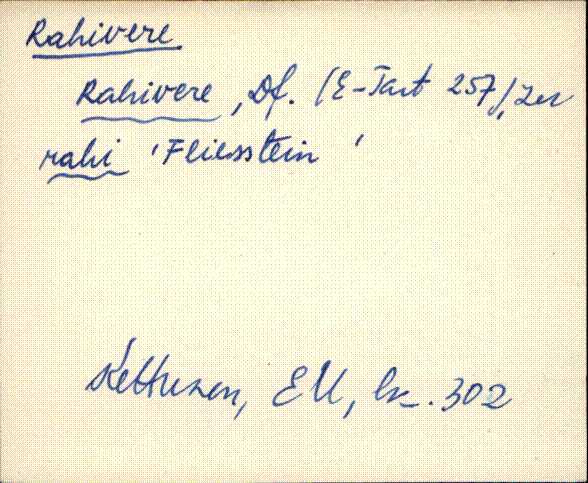 Rahivere
Rahivere, Df. (E-Tart 257), zu
rahi 'Fliesstein'
Kettunen, EU, lk. 302